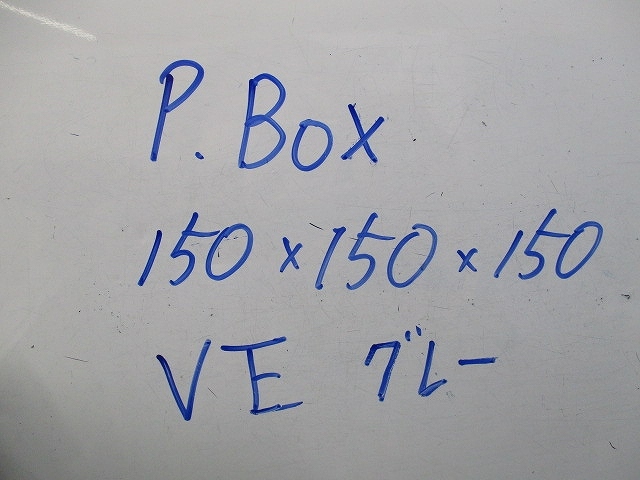 P. Box
150 x 150 x 150
VE グレー